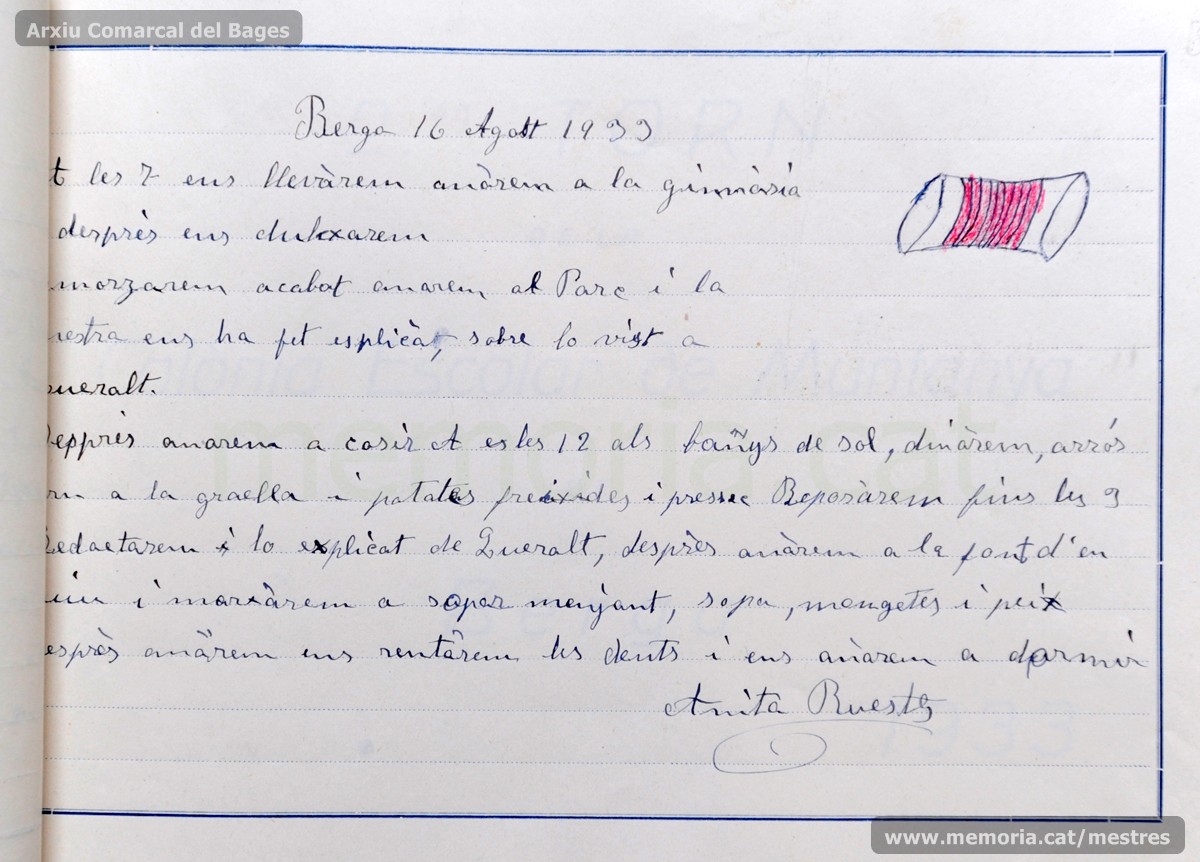 Arxiu Comarcal del Bages
Berga 16 Agost 1933
t les 7 ens llevàrem anàrem a la gimnàsia
desprès ens dutxarem
morzarem acabat anarem al Parc i la
nestra ens ha fet esplicàt, sobre lo vist a
ueralt.
esprès anarem a cosir A es les 12 als bañys de sol, dinàrem, arrós
rn a la graella i patates freixides i presec Reposàrem fins les 3
Redactarem i lo explicat de Queralt, desprès anàrem a la font d'en
i marxàrem a sopar menjant, sopa, mengetes i peix
esprès anàrem ens rentàrem les dents i ens anàrem a dormir
Anita Ruesta
www.memoria.cat/mestres
memoria.cat